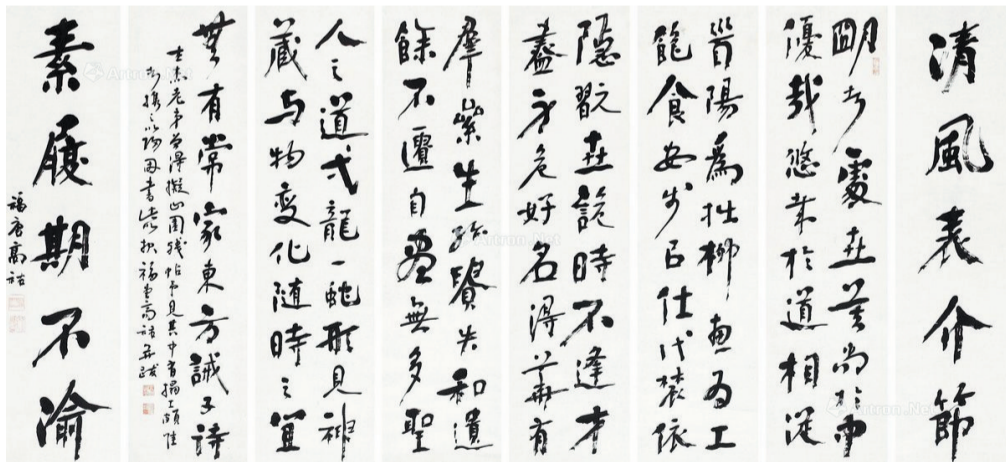 清風表介節
明者處世莫尚於中
優哉悠哉於道相從
首陽為拙柳惠為工
飽食安步㠯仕代農依
隱翫世詭時不逢才
盡身危好名得華有
羣累生孤貴失和遺
餘不匱自盡無多聖
人之道弌龍一蛇形見神
藏与物變化随時之宜
無有常家東方誡子詩
老弟曾得擬山園殘帖見其中有
因書此
素履期不渝
福唐高詰